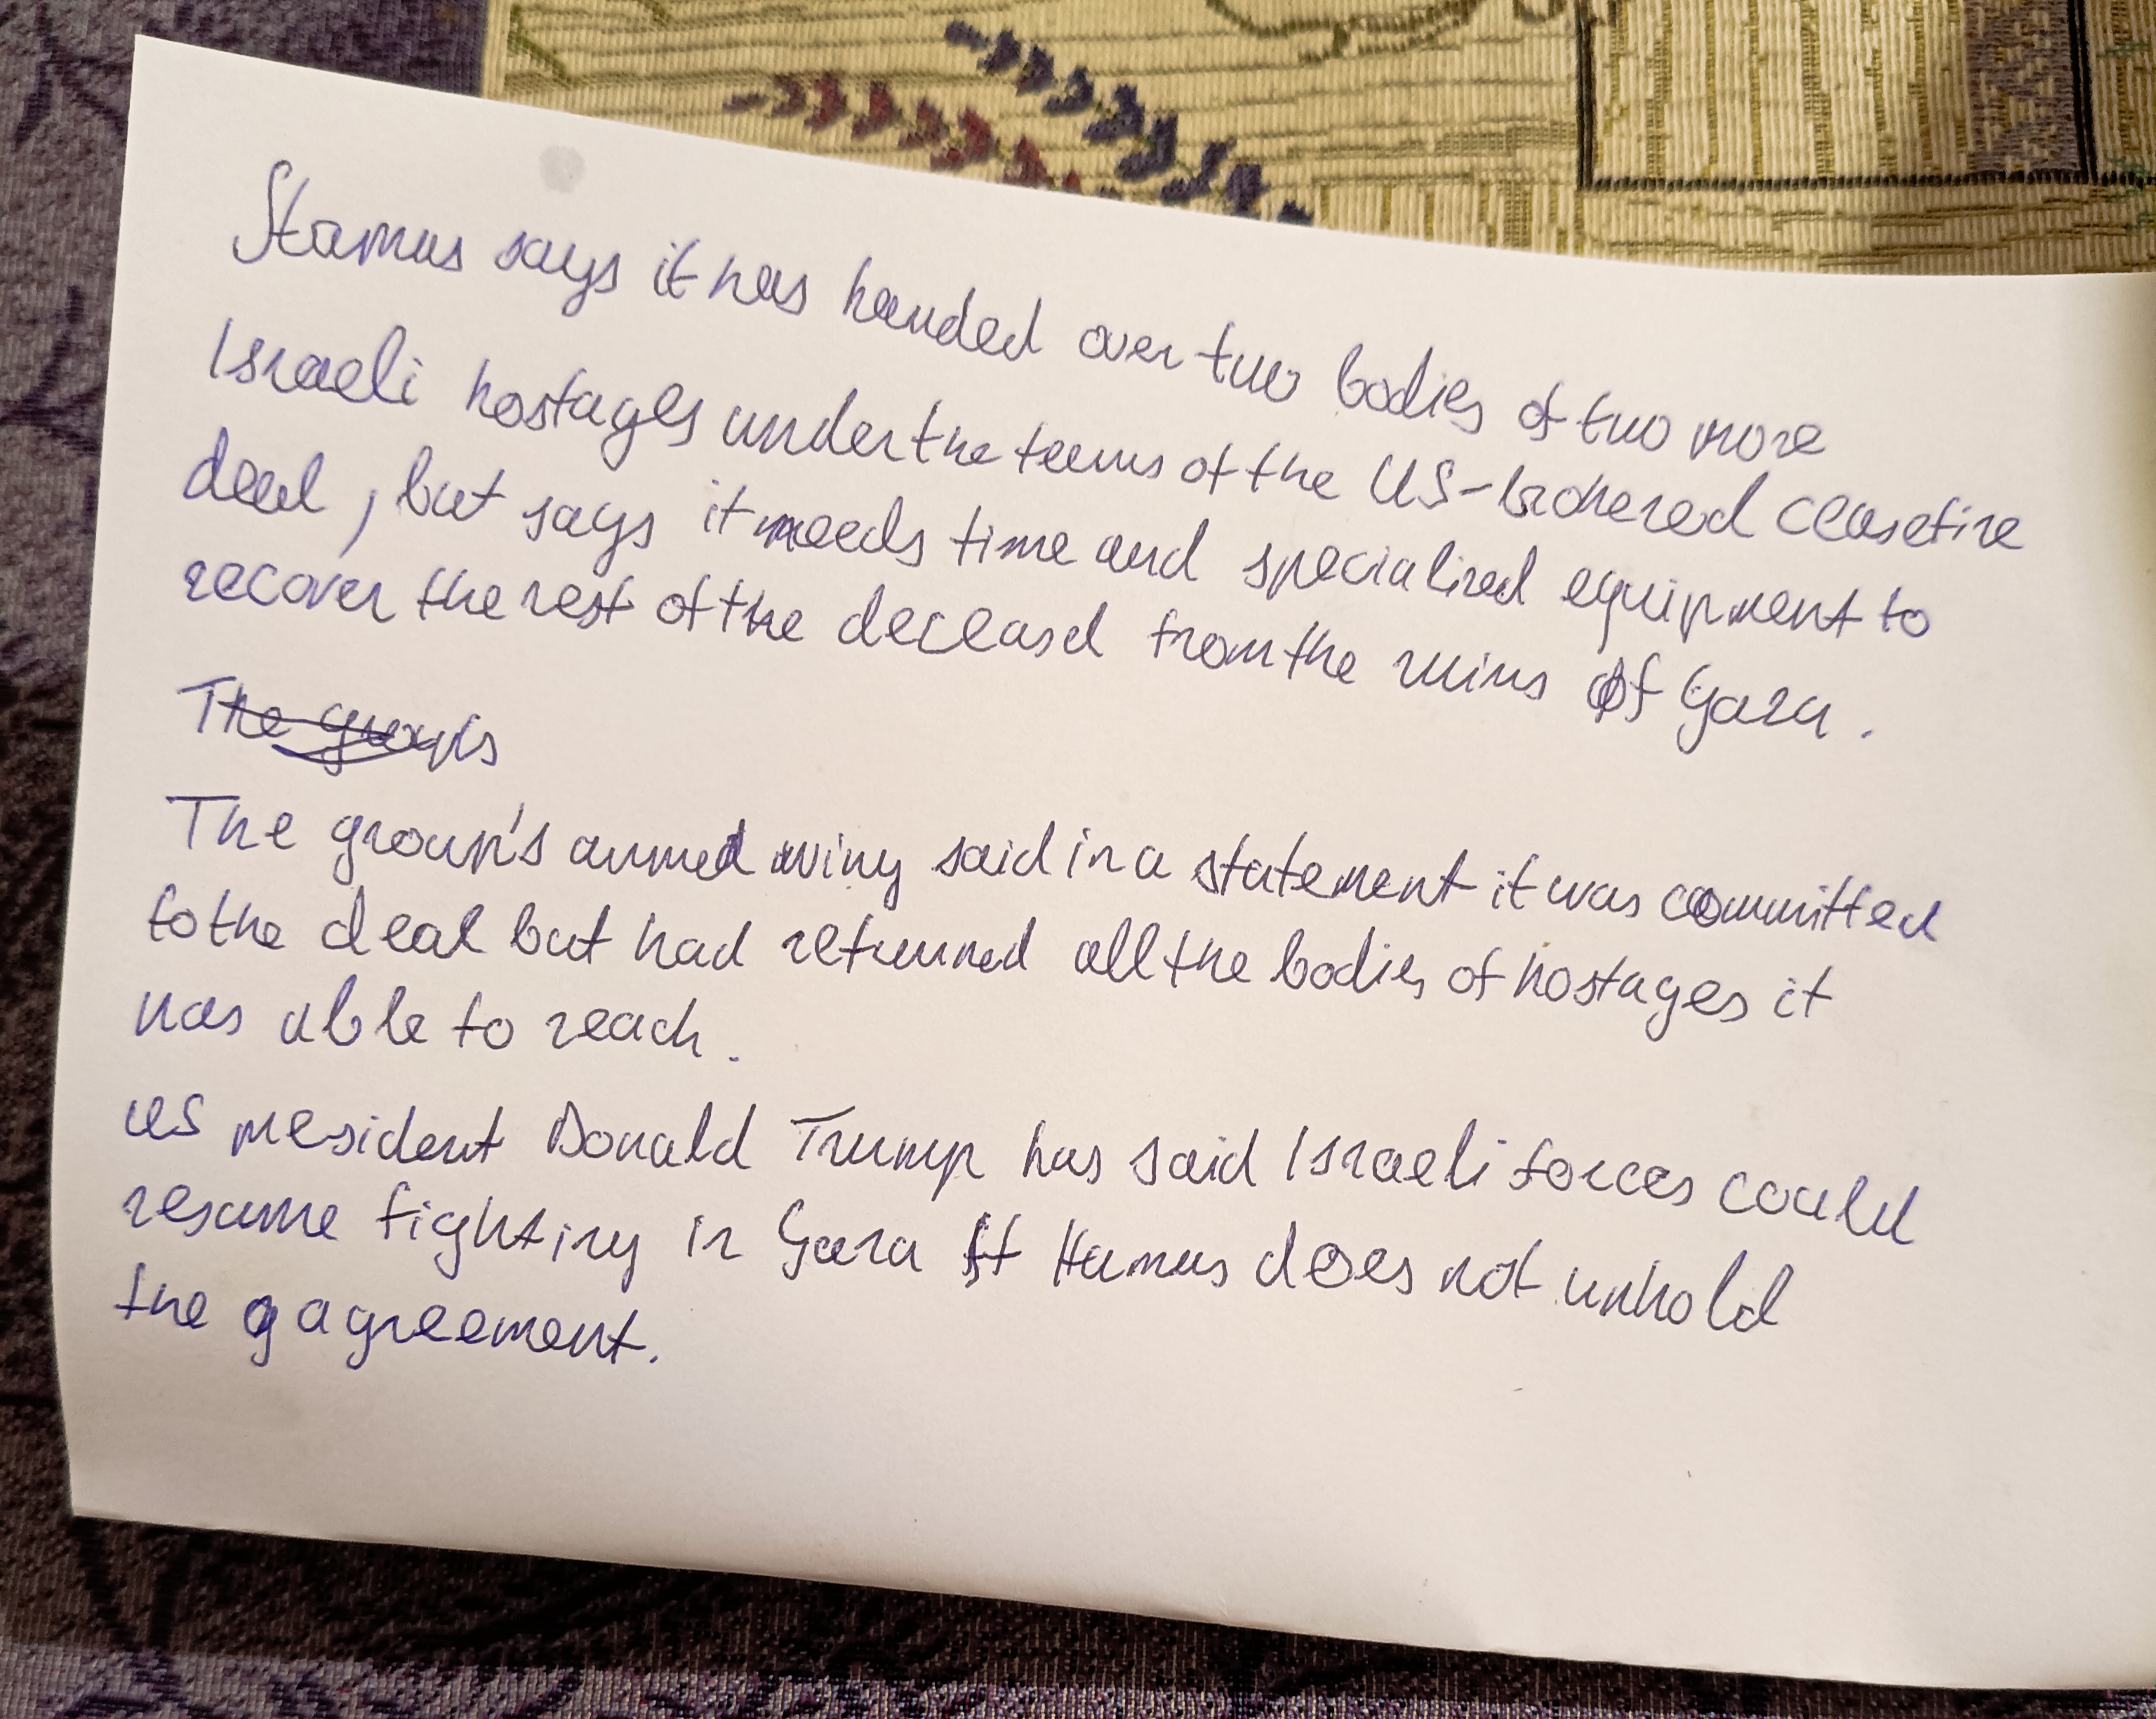 Hamas says it has handed over two bodies of two more
Israeli hostages under the terms of the US-brokered ceasefire
deal, but says it needs time and specialized equipment to
recover the rest of the deceased from the ruins of Gaza.
The group's
The group's armed wing said in a statement it was committed
to the deal but had returned all the bodies of hostages it
was able to reach.
US president Donald Trump has said Israeli forces could
resume fighting in Gaza if Hamas does not uphold
the g agreement.